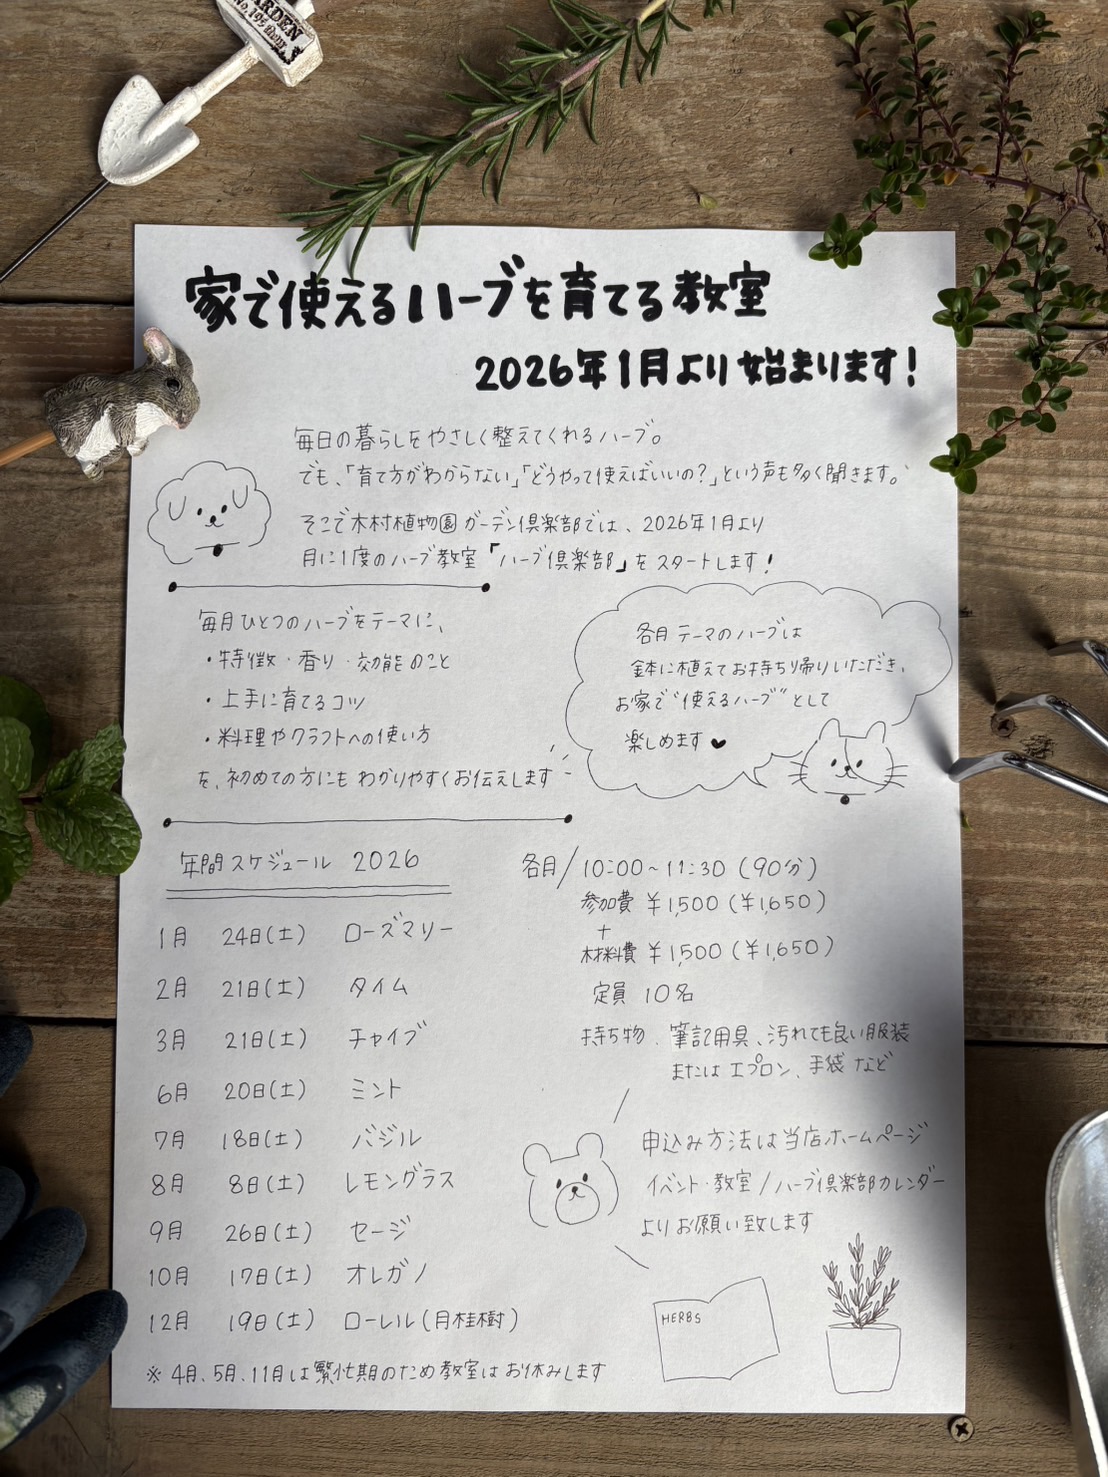 GARDEN
家で使えるハーブを育てる教室
2026年1月より始まります！
毎日の暮らしをやさしく整えてくれるハーブ。
でも、「育て方がわからない」「どうやって使えばいいの？」という声も多く聞きます。
そこで木村植物園ガーデン倶楽部では、2026年1月より
月に1度のハーブ教室「ハーブ倶楽部」をスタートします！
毎月ひとつのハーブをテーマに、
・特徴・香り・効能のこと
・上手に育てるコツ
・料理やクラフトへの使い方
を、初めての方にもわかりやすくお伝えします
各月テーマのハーブは
鉢に植えてお持ち帰りいただき、
お家で“使えるハーブ”として
楽しめます♥
年間スケジュール 2026
1月 24日(土) ローズマリー
2月 21日(土) タイム
3月 21日(土) チャイブ
6月 20日(土) ミント
7月 18日(土) バジル
8月 8日(土) レモングラス
9月 26日(土) セージ
10月 17日(土) オレガノ
12月 19日(土) ローレル(月桂樹)
※4月、5月、11月は繁忙期のため教室はお休みします
各月/10:00~11:30(90分)
参加費 ¥1,500(¥1,650)
+
材料費 ¥1,500(¥1,650)
定員 10名
持ち物．筆記用具、汚れても良い服装
または エプロン、手袋 など
申込み方法は当店ホームページ
イベント・教室/ハーブ倶楽部カレンダー
よりお願い致します
HERBS